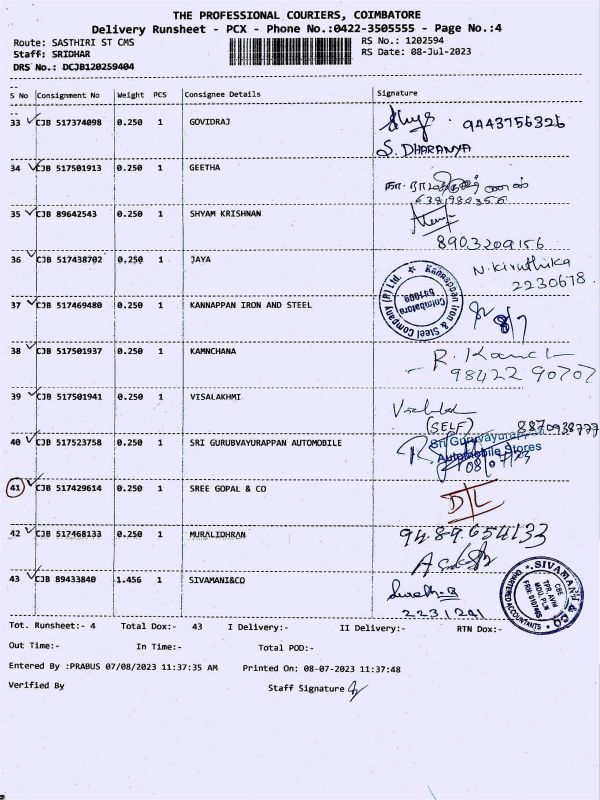 THE PROFESSIONAL COURIERS, COIMBATORE
Delivery Runsheet - PCX - Phone No.:0422-3505555 - Page No.:4
Route: SASTHIRI ST CMS RS No.: 1202594
Staff: SRIDHAR RS Date: 08-Jul-2023
DRS No.: DCJB120259404
S No Consignment No Weight PCS Consignee Details Signature
33 CJB 517374098 0.250 1 GOVIDRAJ 9443756326
S. DHARANYA
34 CJB 517501913 0.250 1 GEETHA
35 CJB 89642543 0.250 1 SHYAM KRISHNAN
8903209156
36 CJB 517438702 0.250 1 JAYA N. Kiruthika
2230678
37 CJB 517469480 0.250 1 KANNAPPAN IRON AND STEEL Kannappan Iron & Steel Company (P) Ltd. Coimbatore 641009 8/7
38 CJB 517501937 0.250 1 KAMNCHANA R. Kanch
98422 90707
39 CJB 517501941 0.250 1 VISALAKHMI
(SELF) 8870938777
40 CJB 517523758 0.250 1 SRI GURUBVAYURAPPAN AUTOMOBILE Sri Guruvayurappan
Automobile Stores
08/07/23
41 CJB 517429614 0.250 1 SREE GOPAL & CO D/L
42 CJB 517468133 0.250 1 MURALIDHRAN 94.89.654133
43 CJB 89433840 1.456 1 SIVAMANI&CO SIVAMANI & CO CHARTERED ACCOUNTANTS
2231291
Tot. Runsheet:- 4 Total Dox:- 43 I Delivery:- II Delivery:- RTN Dox:-
Out Time:- In Time:- Total POD:-
Entered By :PRABUS 07/08/2023 11:37:35 AM Printed On: 08-07-2023 11:37:48
Verified By Staff Signature